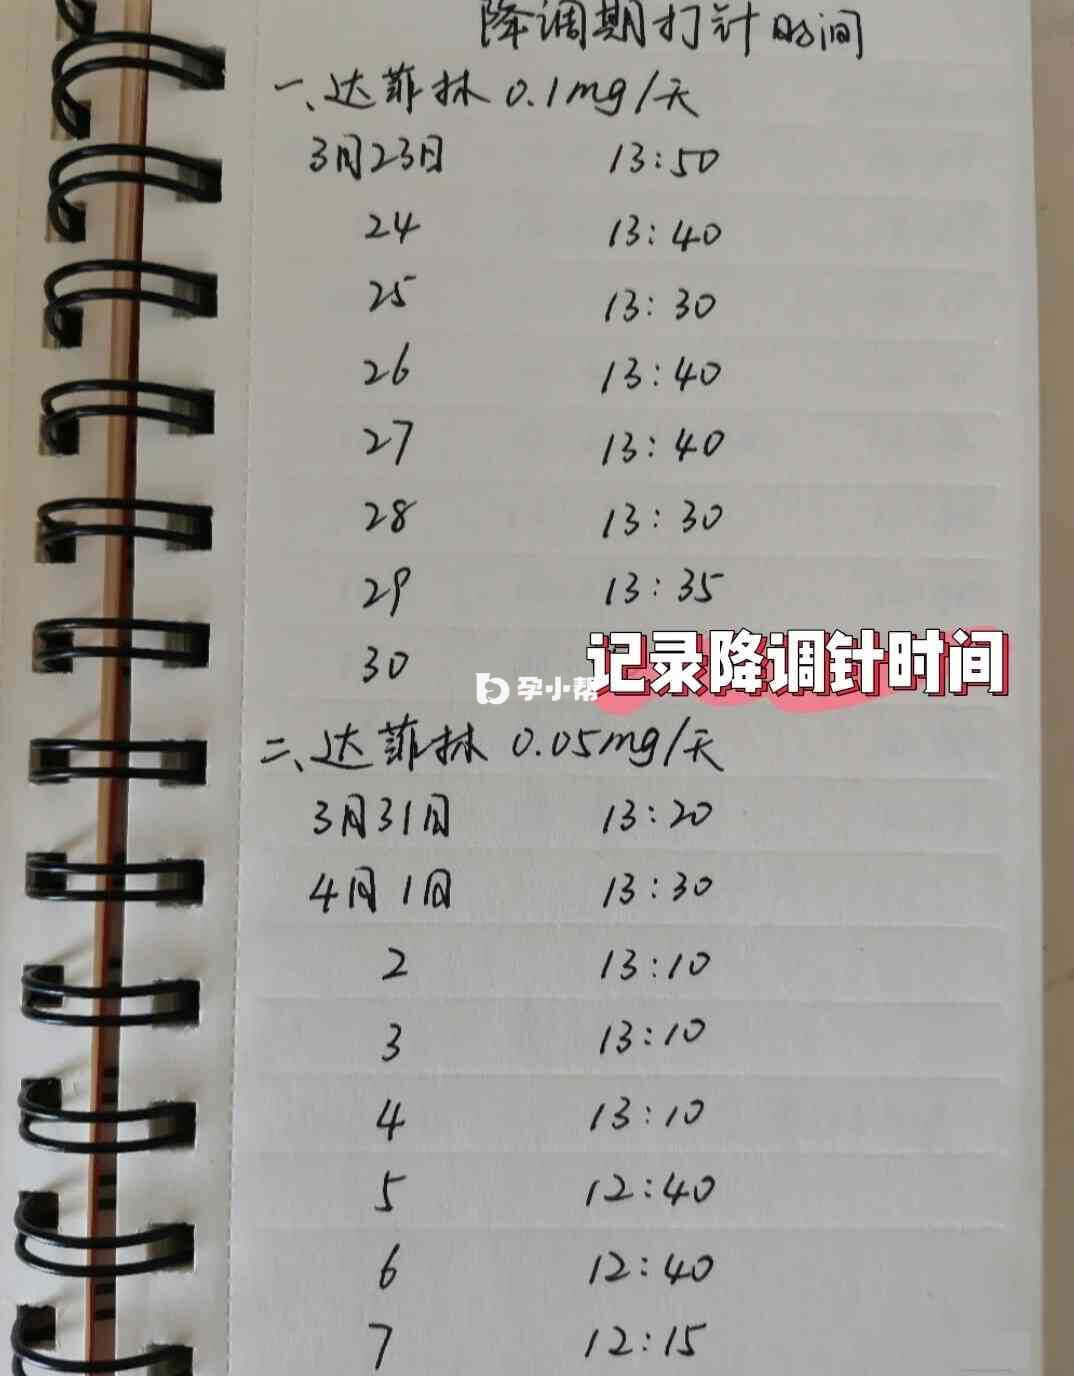 降调期打针时间
一、达菲林 0.1mg/天
3月23日 13:50
24 13:40
25 13:30
26 13:40
27 13:40
28 13:30
29 13:35
30 记录降调针时间
孕小帮
二、达菲林 0.05mg/天
3月31日 13:20
4月1日 13:30
2 13:10
3 13:10
4 13:10
5 12:40
6 12:40
7 12:15